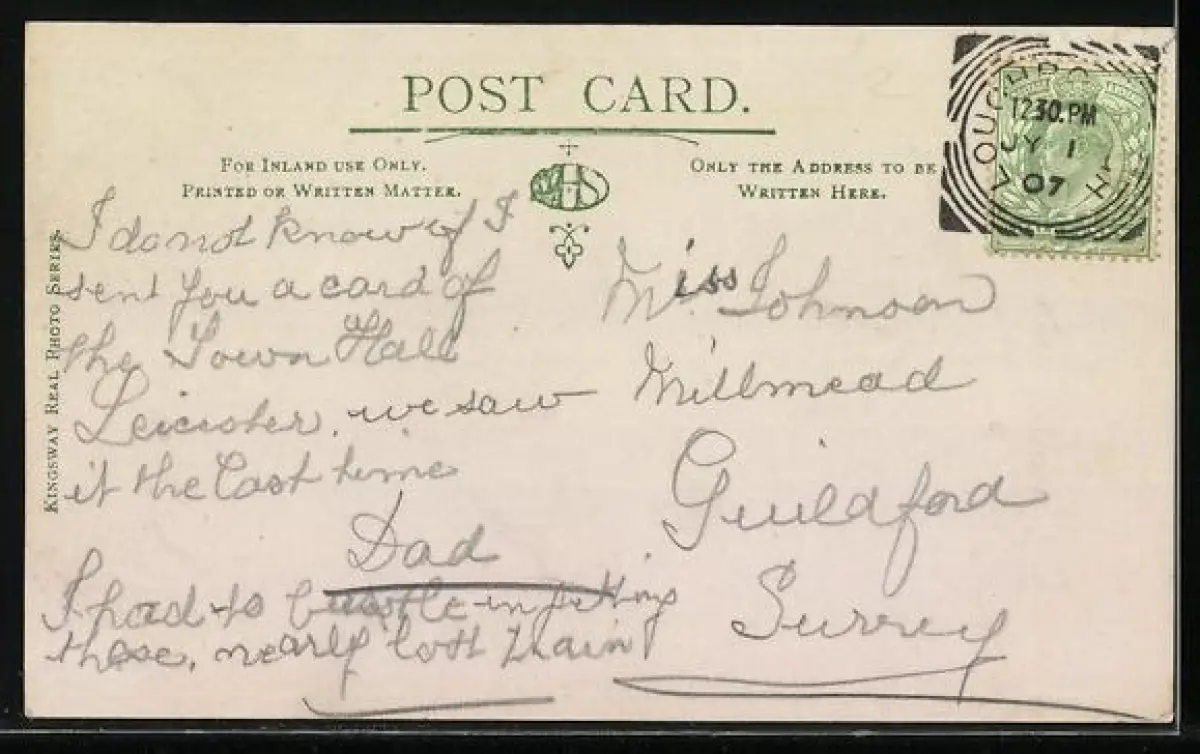 POST CARD.
FOR INLAND USE ONLY.
PRINTED OR WRITTEN MATTER.
ONLY THE ADDRESS TO BE
WRITTEN HERE.
KINGSWAY REAL PHOTO SERIES.
LOUGHBO H
1230.PM
JY 1
07
I do not know if I
sent you a card of
the Town Hall
Leicester, we saw
it the last time
Dad
I had to bustle in getting
these, nearly lost train
Miss Johnson
Millmead
Guildford
Surrey